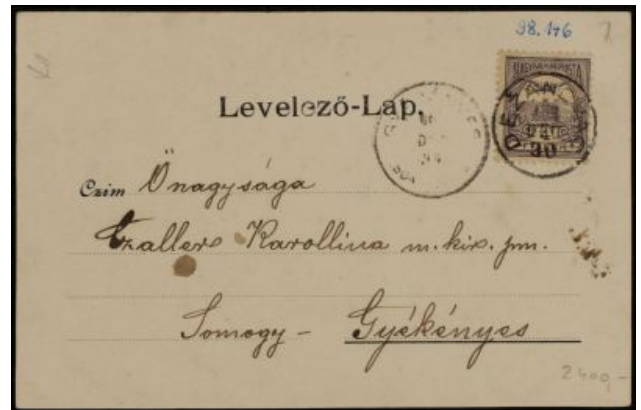 98.146
MAGYAR KIR. POSTA
Levelező-Lap.
Czim Őnagysága
Czallers Karollina m. kir. pm.
Somogy - Gyékényes
2400,-